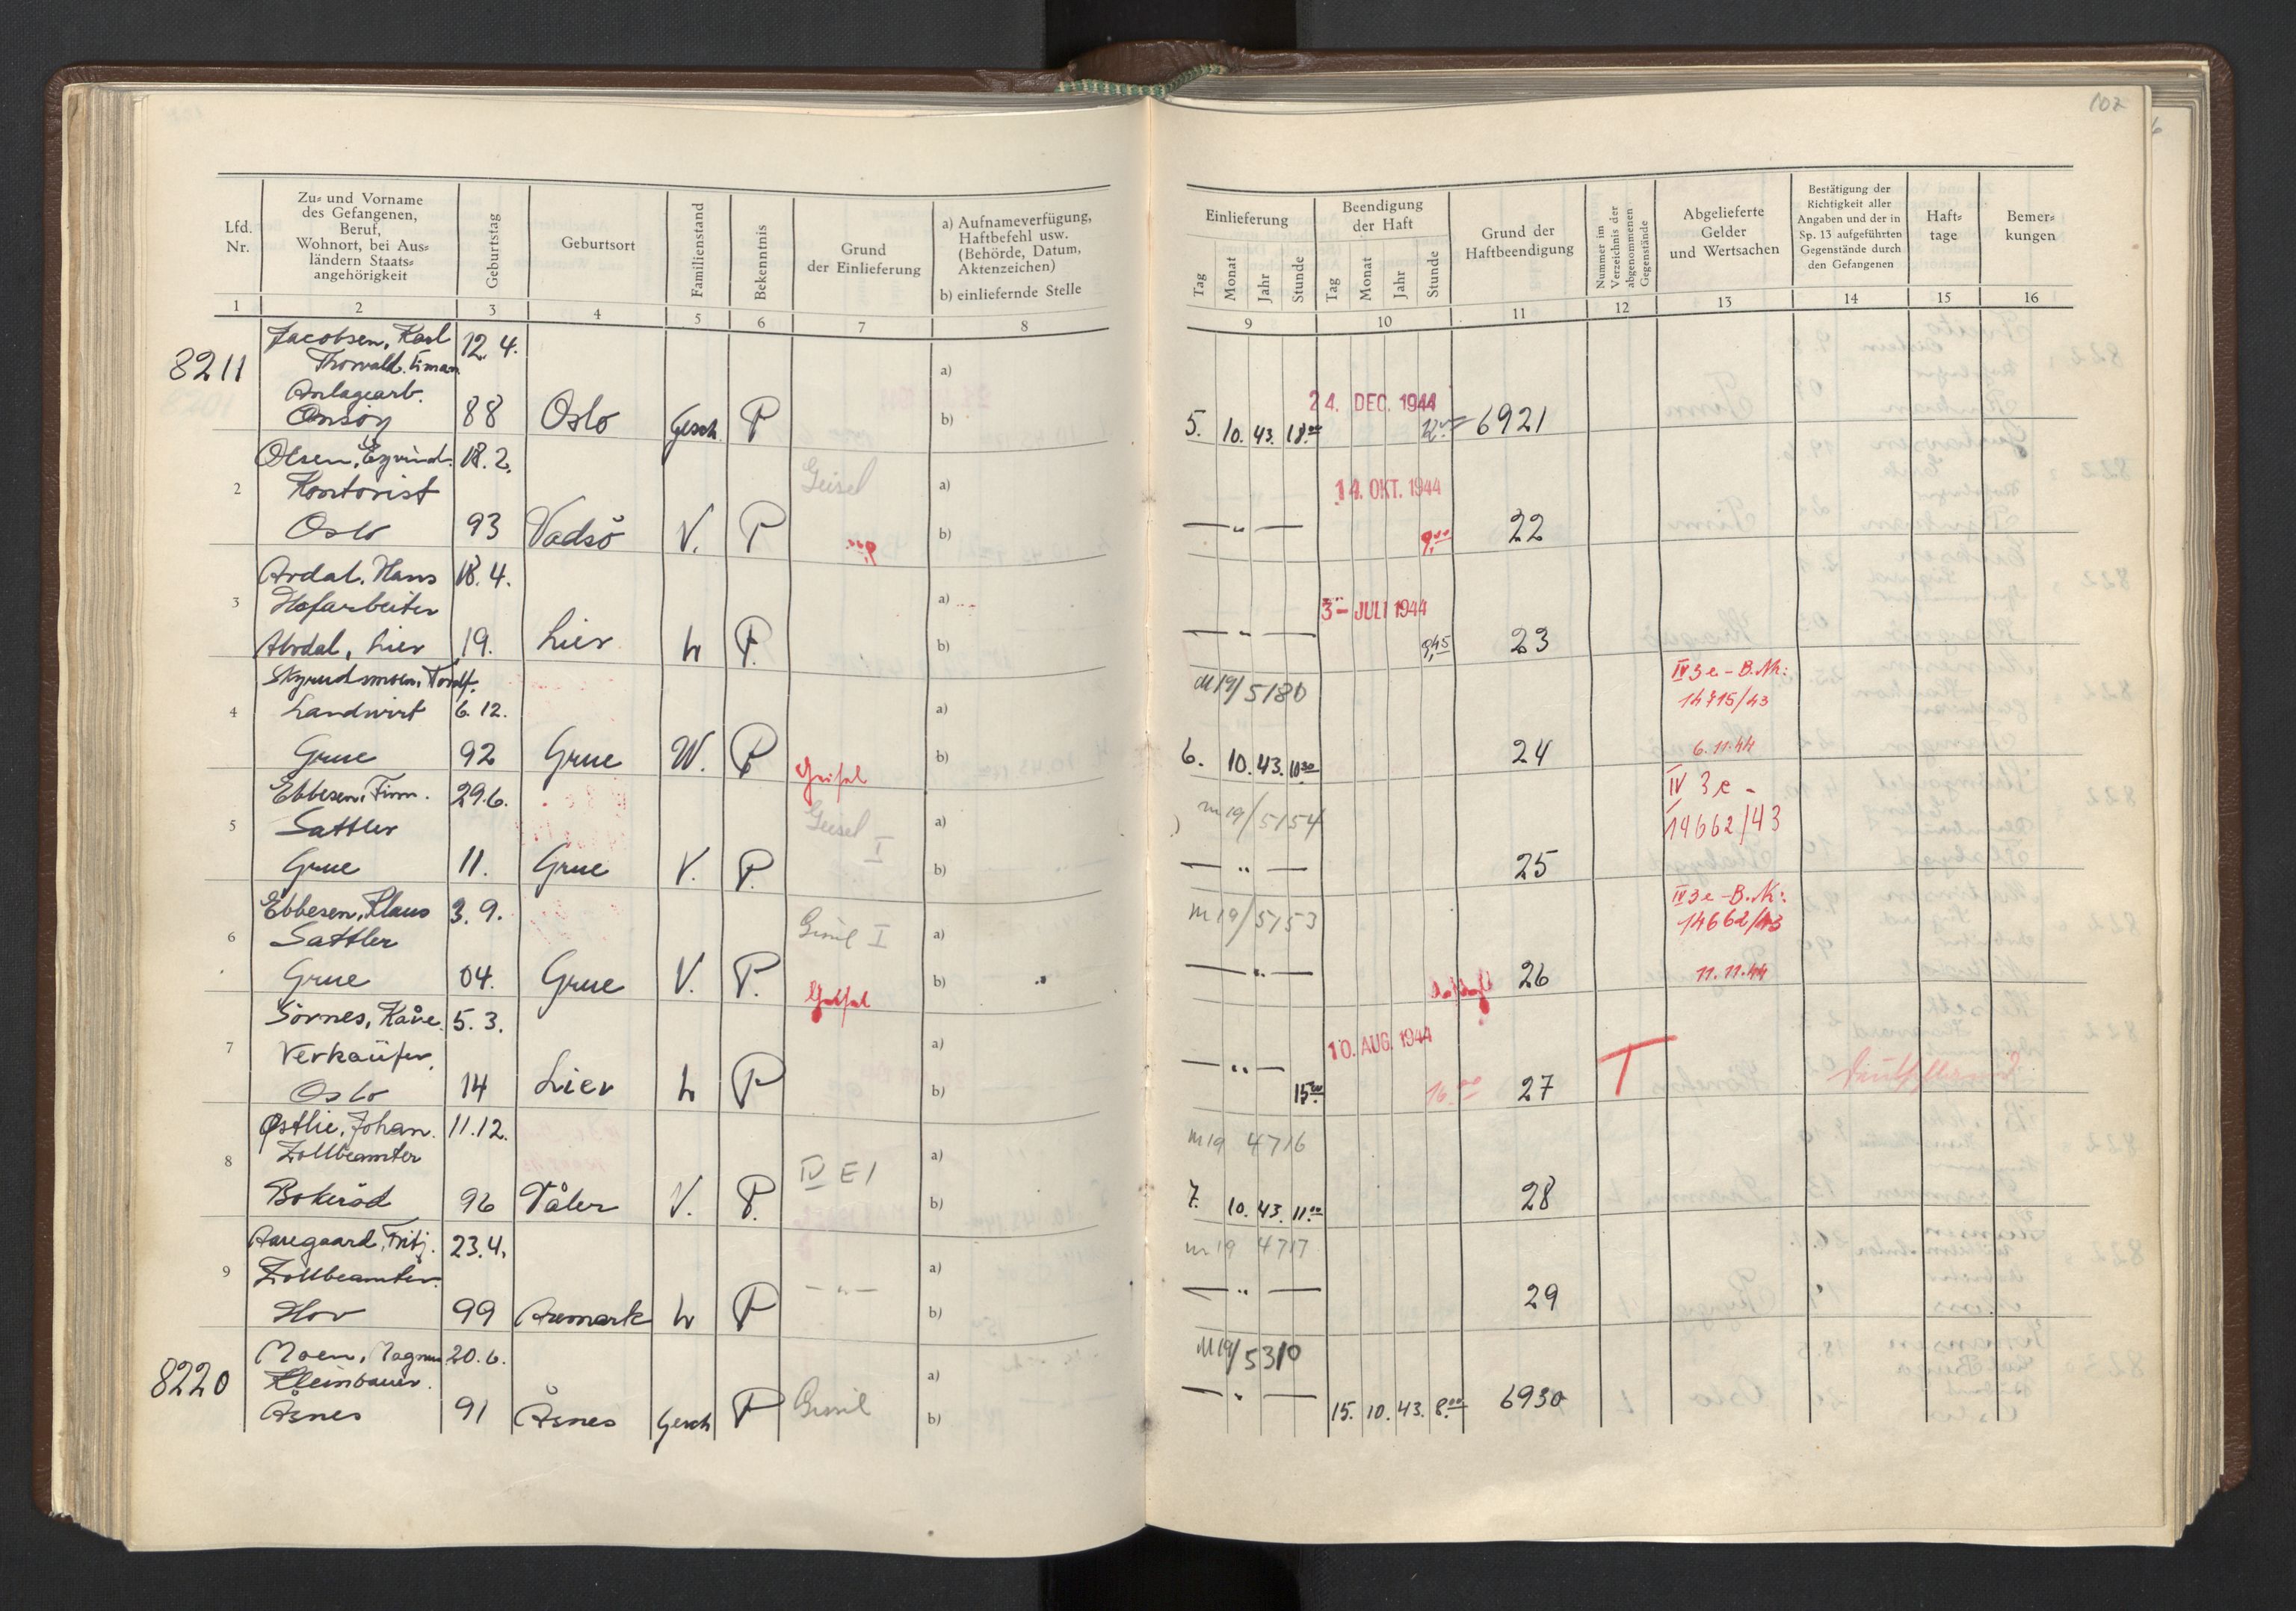 102
Lfd. Nr.
Zu- und Vorname des Gefangenen, Beruf, Wohnort, bei Ausländern Staatsangehörigkeit
Geburtstag
Geburtsort
Familienstand
Bekenntnis
Grund der Einlieferung
a) Aufnameverfügung, Haftbefehl usw. (Behörde, Datum, Aktenzeichen)
b) einliefernde Stelle
Einlieferung
Tag Monat Jahr Stunde
Beendigung der Haft
Tag Monat Jahr Stunde
Grund der Haftbeendigung
Nummer im Verzeichnis der abgenommenen Gegenstände
Abgelieferte Gelder und Wertsachen
Bestätigung der Richtigkeit aller Angaben und der in Sp. 13 aufgeführten Gegenstände durch den Gefangenen
Hafttage
Bemerkungen
1 2 3 4 5 6 7 8 9 10 11 12 13 14 15 16
8211
Jacobsen, Karl
Thorvald
Anlagearb.
Onsöy
12. 4.
88
Oslo
Gesch.
P
a)
b)
5. 10. 43. 18.00
24. DEC. 1944
6921
2
Olsen, Eyvind.
Kontorist
Oslo
18. 2.
93
Vadsö
V.
P
Geisel
a)
b)
— " —
14. OKT. 1944
9.00
22
3
Ardal, Hans
Hofarbeiter
Abrdal, Lier
18. 4.
19.
Lier
L
P.
a)
b)
— " —
3 - JULI 1944
9.45
23
4
Landwirt
Grue
6. 12.
92
Grue
W.
P
Geisel
a)
b)
M19/5180
6. 10. 43. 10.30
24
IV 3e - B.Nr:
14715/43
6. 11. 44
5
Ebbesen, Finn.
Sattler
Grue
29. 6.
11.
Grue
V.
P.
Geisel I
a)
b)
m19/5154
— " —
25
IV 3e -
14662/43
6
Ebbesen, Klaus
Sattler
Grue
3. 9.
04.
Grue
V.
P.
I
Geisel
a)
b)
m19/5153
— " —
26
IV 3e - B.Nr:
14662/43
11. 11. 44
7
Sörnes, Kåre.
Verkaüfer.
Oslo
5. 3.
14
Lier
L
P
a)
b)
— " —
15.00
10. AUG. 1944
16.00
27
T
8
Østlie, Johan.
Zollbeamter
Bokeröd
11. 12.
96
Våler
V.
P.
IV E1
a)
b)
m19 4716
7. 10. 43. 11.00
28
9
Aaregaard, Fritj.
Zollbeamter.
Hov
23. 4.
99
Aremark
L
P
— " —
a)
b)
m19 4717
— " —
29
8220
Moen, Magnus
Kleinbauer.
Åsnes
20. 6.
91
Åsnes
Gesch
P
a)
b)
M19/5310
— " —
15. 10. 43. 8.00
6930